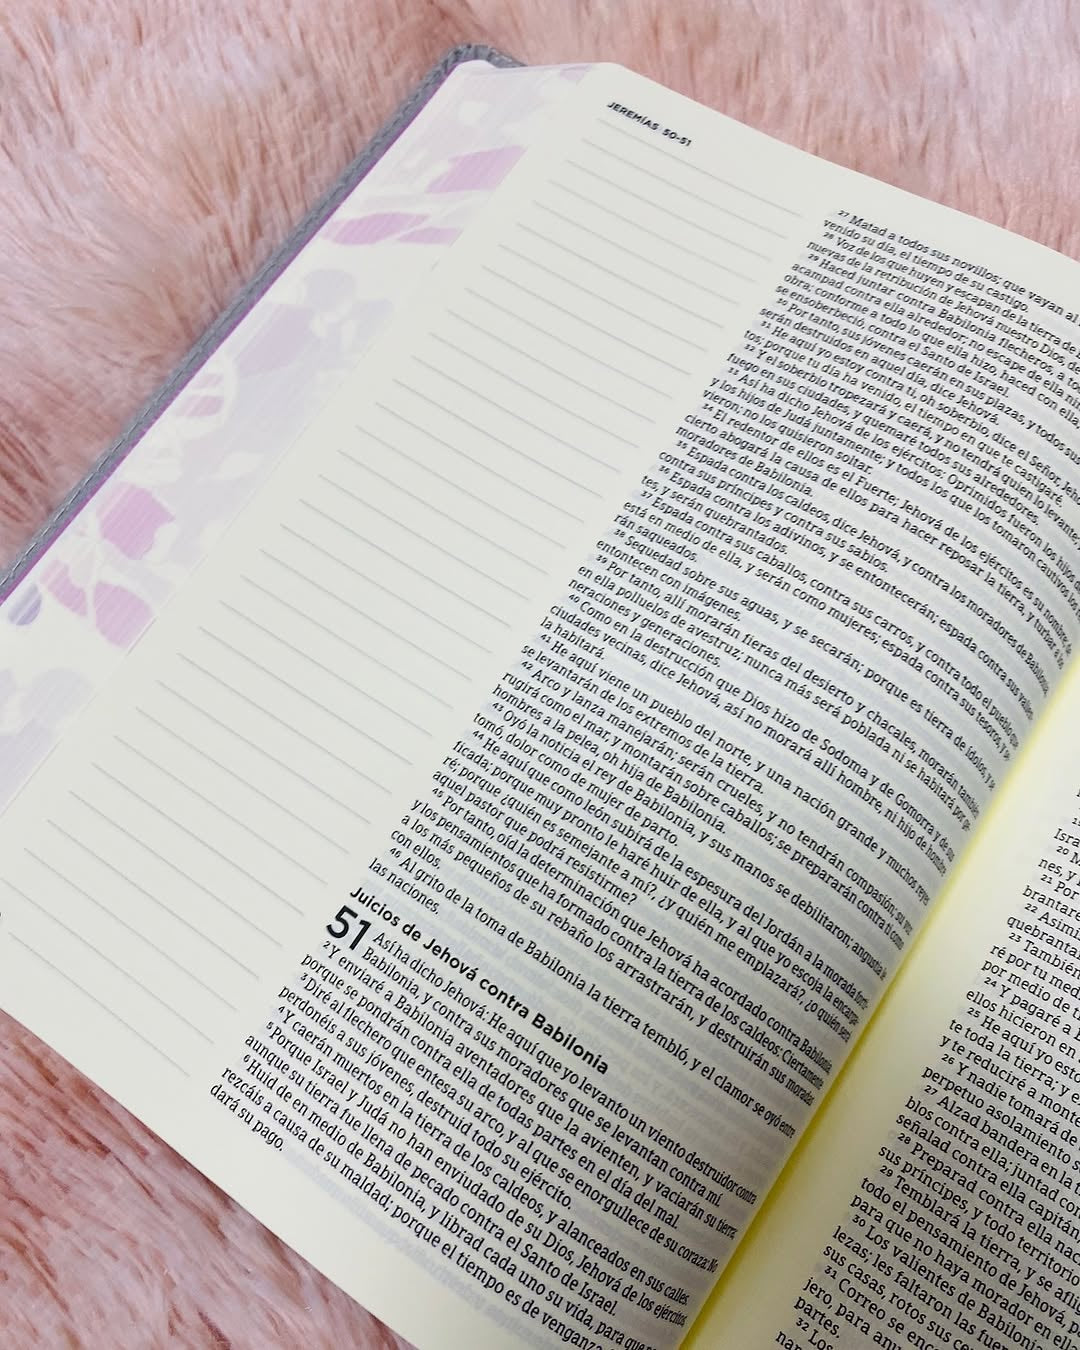 JEREMÍAS 50-51
27 Matad a todos sus novillos; que vayan al
venido su día, el tiempo de su castigo.
28 Voz de los que huyen y escapan de la tierra de
nuevas de la retribución de Jehová nuestro Dios, de
29 Haced juntar contra Babilonia flecheros, a
acampad contra ella alrededor; no escape de ella
obra; conforme a todo lo que ella hizo, haced con ella,
se ensoberbeció, contra el Santo de Israel.
30 Por tanto, sus jóvenes caerán en sus plazas, y todos sus
serán destruidos en aquel día, dice Jehová.
31 He aquí yo estoy contra ti, oh soberbio, dice el Señor, Jehová
tos; porque tu día ha venido, el tiempo en que te castigaré.
32 Y el soberbio tropezará y caerá, y no tendrá quien lo levante;
fuego en sus ciudades, y quemaré todos sus alrededores.
33 Así ha dicho Jehová de los ejércitos: Oprimidos fueron los hijos de
y los hijos de Judá juntamente; y todos los que los tomaron cautivos los
vieron; no los quisieron soltar.
34 El redentor de ellos es el Fuerte; Jehová de los ejércitos es su nombre; de
cierto abogará la causa de ellos para hacer reposar la tierra, y turbar a los
moradores de Babilonia.
35 Espada contra los caldeos, dice Jehová, y contra los moradores de Babilonia,
contra sus príncipes y contra sus sabios.
36 Espada contra los adivinos, y se entontecerán; espada contra sus valien-
tes, y serán quebrantados.
37 Espada contra sus caballos, contra sus carros, y contra todo el pueblo que
está en medio de ella, y serán como mujeres; espada contra sus tesoros, y se-
rán saqueados.
38 Sequedad sobre sus aguas, y se secarán; porque es tierra de ídolos, y se
entontecen con imágenes.
39 Por tanto, allí morarán fieras del desierto y chacales, morarán también
en ella polluelos de avestruz; nunca más será poblada ni se habitará por ge-
neraciones y generaciones.
40 Como en la destrucción que Dios hizo de Sodoma y de Gomorra y de sus
ciudades vecinas, dice Jehová, así no morará allí hombre, ni hijo de hombre
la habitará.
41 He aquí viene un pueblo del norte, y una nación grande y muchos reyes
se levantarán de los extremos de la tierra.
42 Arco y lanza manejarán; serán crueles, y no tendrán compasión; su voz
rugirá como el mar, y montarán sobre caballos; se prepararán contra ti como
hombres a la pelea, oh hija de Babilonia.
43 Oyó la noticia el rey de Babilonia, y sus manos se debilitaron; angustia le
tomó, dolor como de mujer de parto.
44 He aquí que como león subirá de la espesura del Jordán a la morada forti-
ficada; porque muy pronto le haré huir de ella, y al que yo escoja la encarga-
ré; porque ¿quién es semejante a mí?, ¿y quién me emplazará?, ¿O quién será
aquel pastor que podrá resistirme?
45 Por tanto, oíd la determinación que Jehová ha acordado contra Babilonia,
y los pensamientos que ha formado contra la tierra de los caldeos: Ciertamente
a los más pequeños de su rebaño los arrastrarán, y destruirán sus moradas
con ellos.
46 Al grito de la toma de Babilonia la tierra tembló, y el clamor se oyó entre
las naciones.
Juicios de Jehová contra Babilonia
51 Así ha dicho Jehová: He aquí que yo levanto un viento destruidor contra
Babilonia, y contra sus moradores que se levantan contra mí.
2 Y enviaré a Babilonia aventadores que la avienten, y vaciarán su tierra;
porque se pondrán contra ella de todas partes en el día del mal.
3 Diré al flechero que entesa su arco, y al que se enorgullece de su coraza: No
perdonéis a sus jóvenes, destruid todo su ejército.
4 Y caerán muertos en la tierra de los caldeos, y alanceados en sus calles.
5 Porque Israel y Judá no han enviudado de su Dios, Jehová de los ejércitos,
aunque su tierra fue llena de pecado contra el Santo de Israel.
6 Huid de en medio de Babilonia, y librad cada uno su vida, para que
rezcáis a causa de su maldad; porque el tiempo es de venganza
dará su pago.
Isra
20 M
nes, y
21 Por
brantaré
22 Asimi
quebranta
23 También
ré por tu med
por medio de t
24 Y pagaré a
ellos hicieron en
25 He aquí yo esto
te toda la tierra; y e
y te reduciré a mont
26 Y nadie tomará de
perpetuo asolamiento s
27 Alzad bandera en la t
blos contra ella; juntad con
señalad contra ella capitán,
28 Preparad contra ella nac
sus príncipes, y todo territorio
29 Temblará la tierra, y se aflig
todo el pensamiento de Jehová, p
para que no haya morador en el
30 Los valientes de Babilonia
lezas; les faltaron las fuer
sus casas, rotos sus ce
31 Correo se enc
jero, para anu
partes,
32 Los
nan